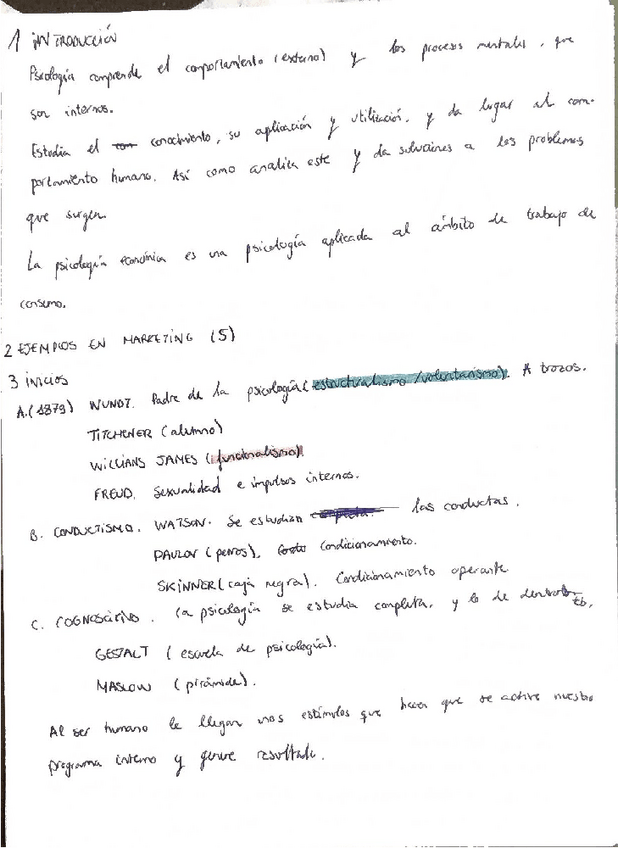 1 INTRODUCCIÓN
Psicología comprende el comportamiento (externo) y los procesos mentales, que
son internos.
Estudia el conocimiento, su aplicación y utilización, y da lugar al com-
portamiento humano. Así como analiza este y da soluciones a los problemas
que surgen.
La psicología económica es una psicología aplicada al ámbito de trabajo de
consumo.
2 EJEMPLOS EN MARKETING (5)
3 inicios
A.(1879) WUNDT. Padre de la psicología (estructuralismo /voluntarismo). A trozos.
TITCHENER (alumno)
WILLIANS JAMES (funcionalismo)
FREUD. Sexualidad e impulsos internos.
B. CONDUCTISMO. WATSON. Se estudian las conductas.
PAULOV (perros). Condicionamiento.
SKINNER (caja negra). Condicionamiento operante
C. COGNOSCITIVO. La psicología se estudia completa, y lo de dentro tb.
GESTALT (escuela de psicología).
MASLOW (pirámide).
Al ser humano le llegan unos estímulos que hacen que se active nuestro
programa interno y genere resultado.